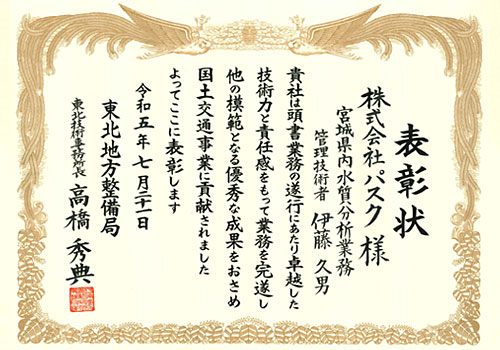 表彰状
株式会社パスク 様
宮城県内水質分析業務
管理技術者 伊藤 久男
貴社は頭書業務の遂行にあたり卓越した
技術力と責任感をもって業務を完遂し
他の模範となる優秀な成果をおさめ
国土交通事業に貢献されました
よってここに表彰します
令和五年七月二十一日
東北地方整備局
東北技術事務所長 高橋 秀典